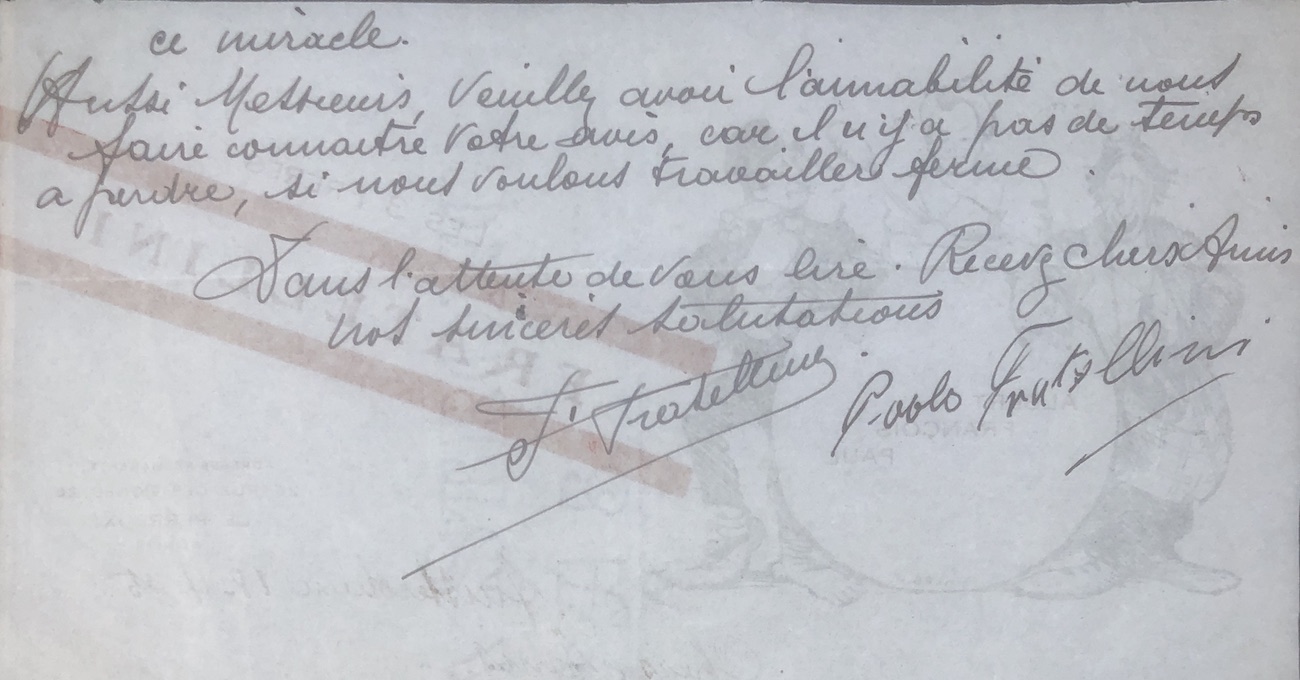 ce miracle.
Aussi Messieurs, Veuillez avoir l'aimabilité de nous
faire connaitre Votre avis, car il n'y a pas de temps
a perdre, si nous voulons travailler ferme.
Dans l'attente de vous lire. Recevez chers Amis
nos sincères salutations
F. Fratellini
Paolo Fratellini
LES 3
ALBERT
FRANÇOIS
PAUL